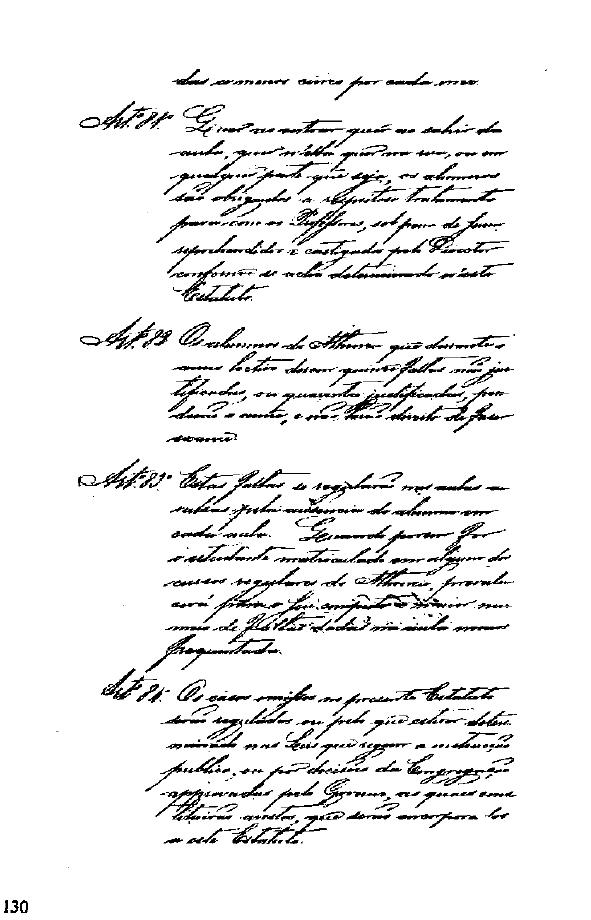 das ao menos cinco por cada mez.
Art.º 81º Quer no entrar quer no sahir da
aula, quer n'ella quer na rua, ou em
qualquer parte que seja, os alumnos
são obrigados a respeitoso tratamento
para com os Professores, sob pena de serem
reprehendidos e castigados pelo Director
conforme se acha determinado n'este
Estatuto.
Art.º 82 Os alumnos do Atheneo que durante o
anno lectivo derem quinze faltas não jus
tificadas, ou quarenta justificadas, per
derão o anno, e não terão direito de fazer
exame.
Art.º 83º Estas faltas se regularão nas aulas a-
vulsas pela ausencia do alumno em
cada aula. Quando porem for
o estudante matriculado em algum dos
cursos regulares do Atheneo, prevale
cerá para o seu computo o maior nu-
mero de faltas dadas na aula menos
frequentada.
Art.º 84º Os casos omissos no presente Estatuto
serão regulados ou pelo que estiver deter
minado nas Leis que regem a instrucção
publica, ou por decisões da Congregação
approvadas pelo Governo, as quaes cons
tituirão arestos, que serão encorpora dos
a este Estatuto.
130